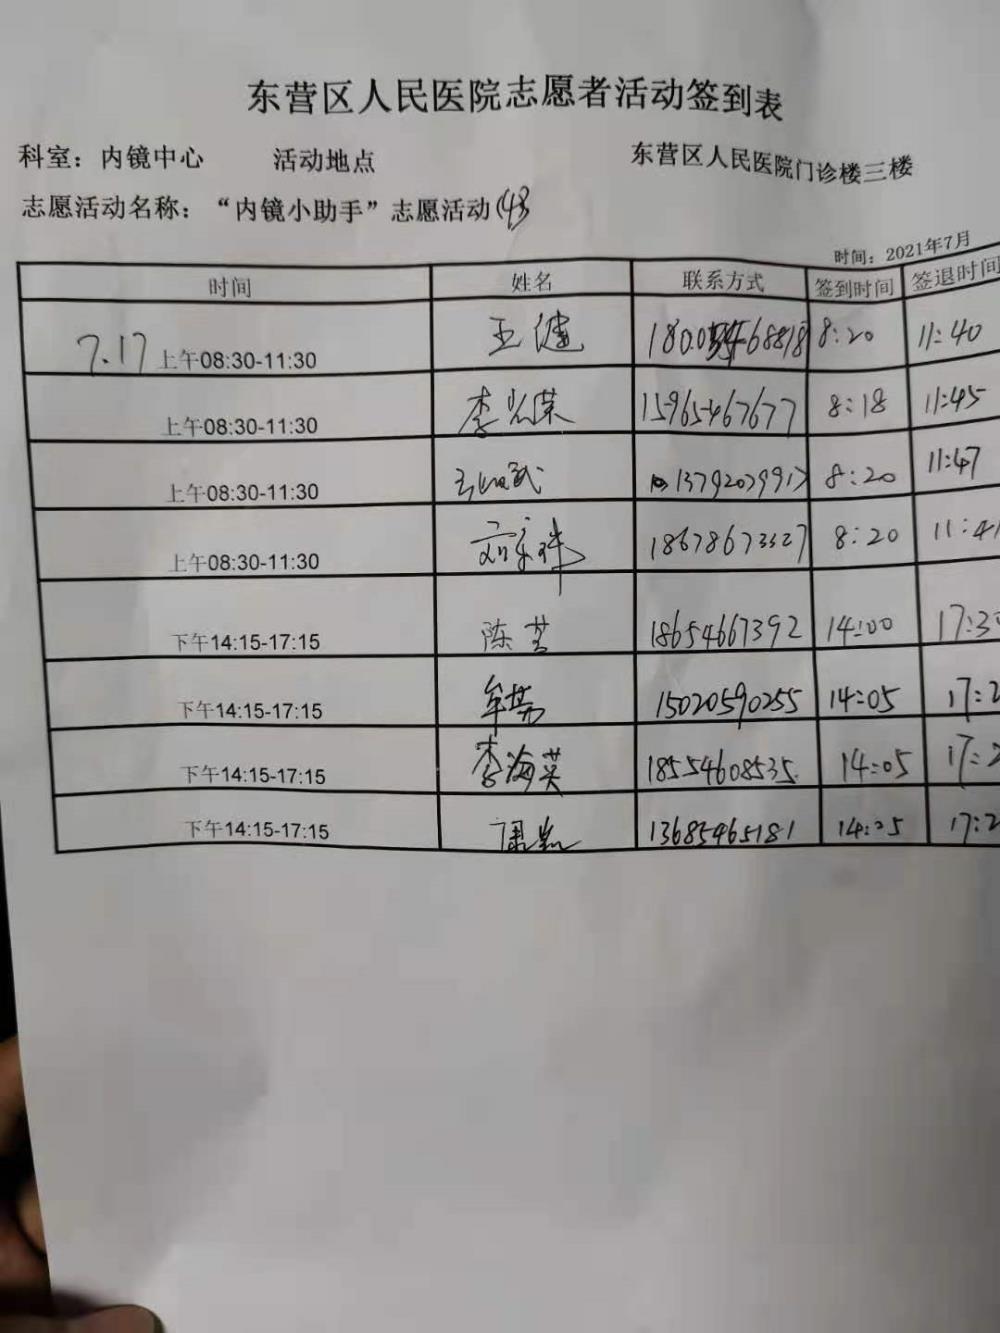 东营区人民医院志愿者活动签到表
科室：内镜中心 活动地点 东营区人民医院门诊楼三楼
志愿活动名称：“内镜小助手”志愿活动(43
时间：2021年7月
时间 姓名 联系方式 签到时间 签退时间
7.17 上午08:30-11:30 王健 8:20 11:40
上午08:30-11:30 李光荣 15965467677 8:18 11:45
上午08:30-11:30 13792079917 8:20 11:47
上午08:30-11:30 18678673327 8:20 11:41
下午14:15-17:15 陈芝 18654667392 14:00 17:3
下午14:15-17:15 牟芳 15020590255 14:05 17:2
下午14:15-17:15 李海英 18554608535 14:05 17:2
下午14:15-17:15 13685465181 14:05 17:2